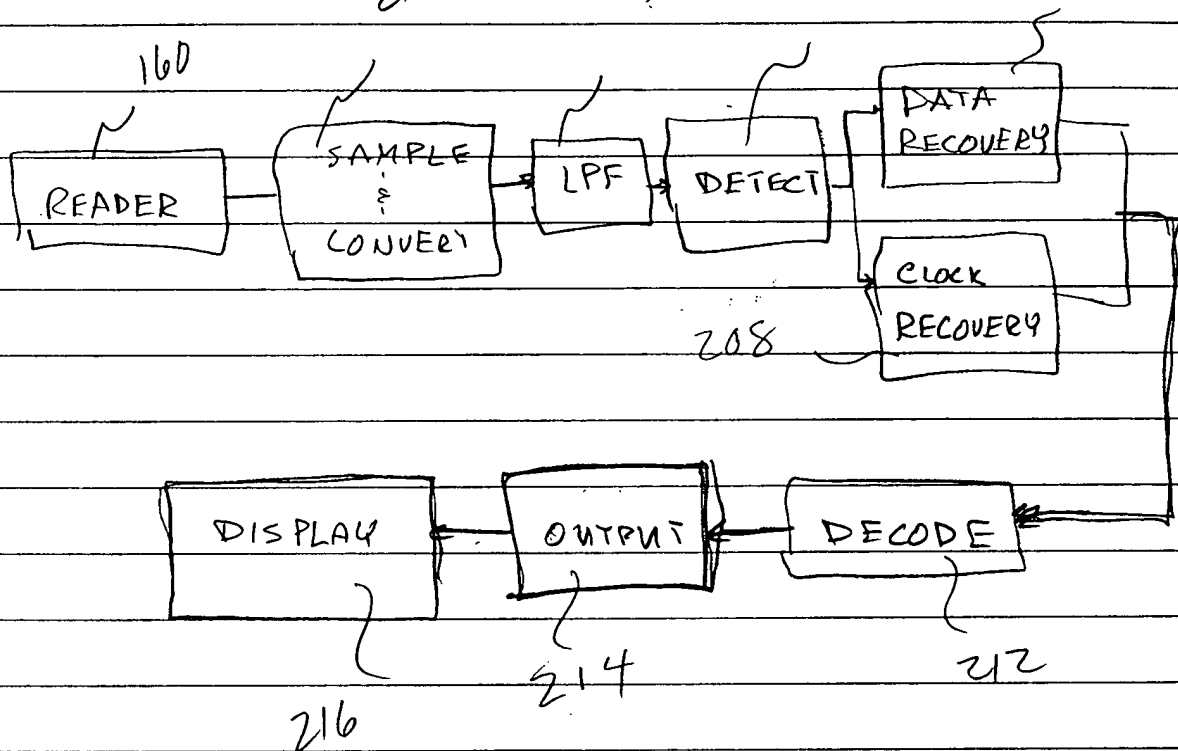 160
READER
SAMPLE
&
CONVERT
LPF
DETECT
DATA
RECOVERY
CLOCK
RECOVERY
208
DISPLAY
OUTPUT
DECODE
216
214
212